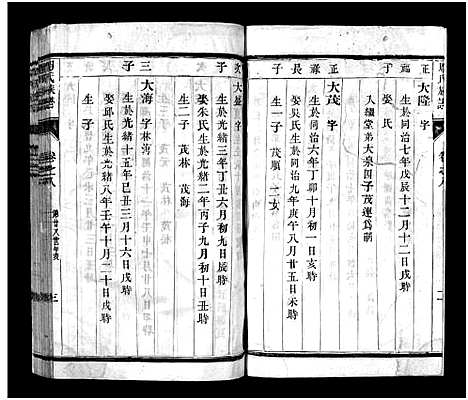 氏族譜
卷之八
二
正
大隆 字
生於同治七年戊辰十二月十二日戌時
娶氏
入繼堂弟大泉因子茂蓮為嗣
正
大茂 字
生於同治六年丁卯十月初一日亥時
娶吳氏生於同治九年庚午八月廿五日未時
子 生一子 茂順 二女
次
大盛 字
生於光緒三年丁丑六月初九日辰時
娶朱氏生於光緒二年丙子九月初十日丑時
子 生二子 茂林 茂海
三
大海 字林海
生於光緒十五年己丑三月十六日戌時
娶邱氏生於光緒八年壬午十月二十日戌時
子 生 子
氏族譜
卷之八
第廿八世
三